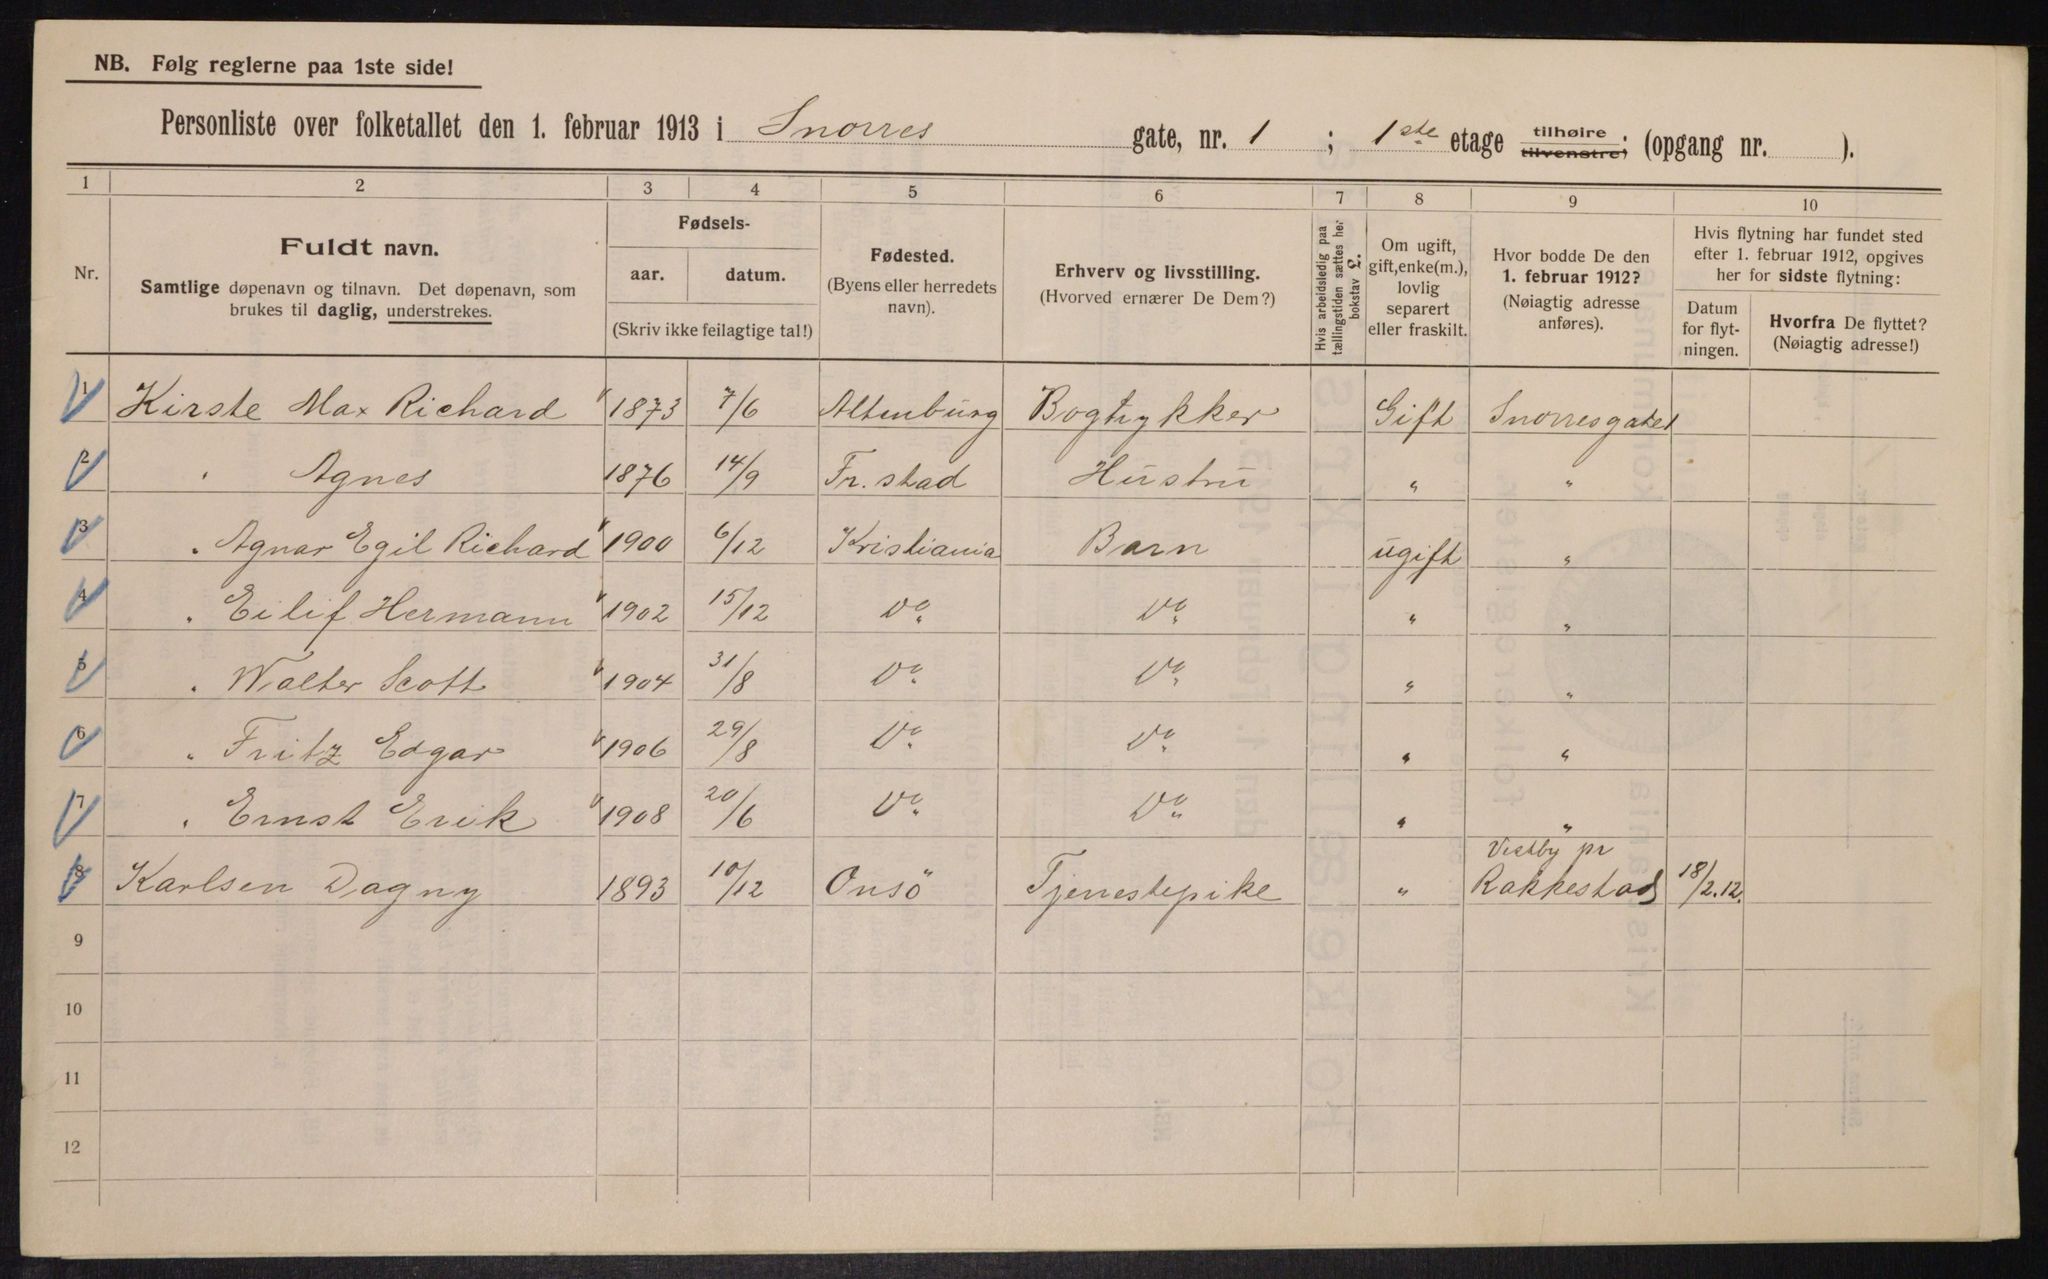 NB. Følg reglerne paa 1ste side!
Personliste over folketallet den 1. februar 1913 i Snorres gate, nr. 1 ; 1ste etage tilhøire tilvenstre; (opgang nr. ).
1 2 3 4 5 6 7 8 9 10
Nr.
Fuldt navn.
Samtlige døpenavn og tilnavn. Det døpenavn, som
brukes til daglig, understrekes.
Fødsels-
aar. datum.
(Skriv ikke feilagtige tal!)
Fødested.
(Byens eller herredets
navn).
Erhverv og livsstilling.
(Hvorved ernærer De Dem?)
Hvis arbeidsledig paa
tællingstiden sættes her
bokstav L.
Om ugift,
gift, enke(m.),
lovlig
separert
eller fraskilt.
Hvor bodde De den
1. februar 1912?
(Nøiagtig adresse
anføres).
Hvis flytning har fundet sted
efter 1. februar 1912, opgives
her for sidste flytning:
Datum
for flyt-
ningen.
Hvorfra De flyttet?
(Nøiagtig adresse!)
1 Kirste Max Richard 1873 7/6 Altenburg Bogtrykker Gift Snorresgate 1
2 " Agnes 1876 14/9 Fr. stad Hustru " "
3 " Agnar Egil Richard 1900 6/12 Kristiania Barn ugift "
4 " Eilif Hermann 1902 15/12 Do Do " "
5 " Walter Scott 1904 31/8 Do Do " "
6 " Fritz Edgar 1906 29/8 Do Do " "
7 " Ernst Erik 1908 20/6 Do Do " "
8 Karlsen Dagny 1893 10/12 Onsö Tjenestepike " Vestby pr Rakkestad 18/2.12.
9
10
11
12